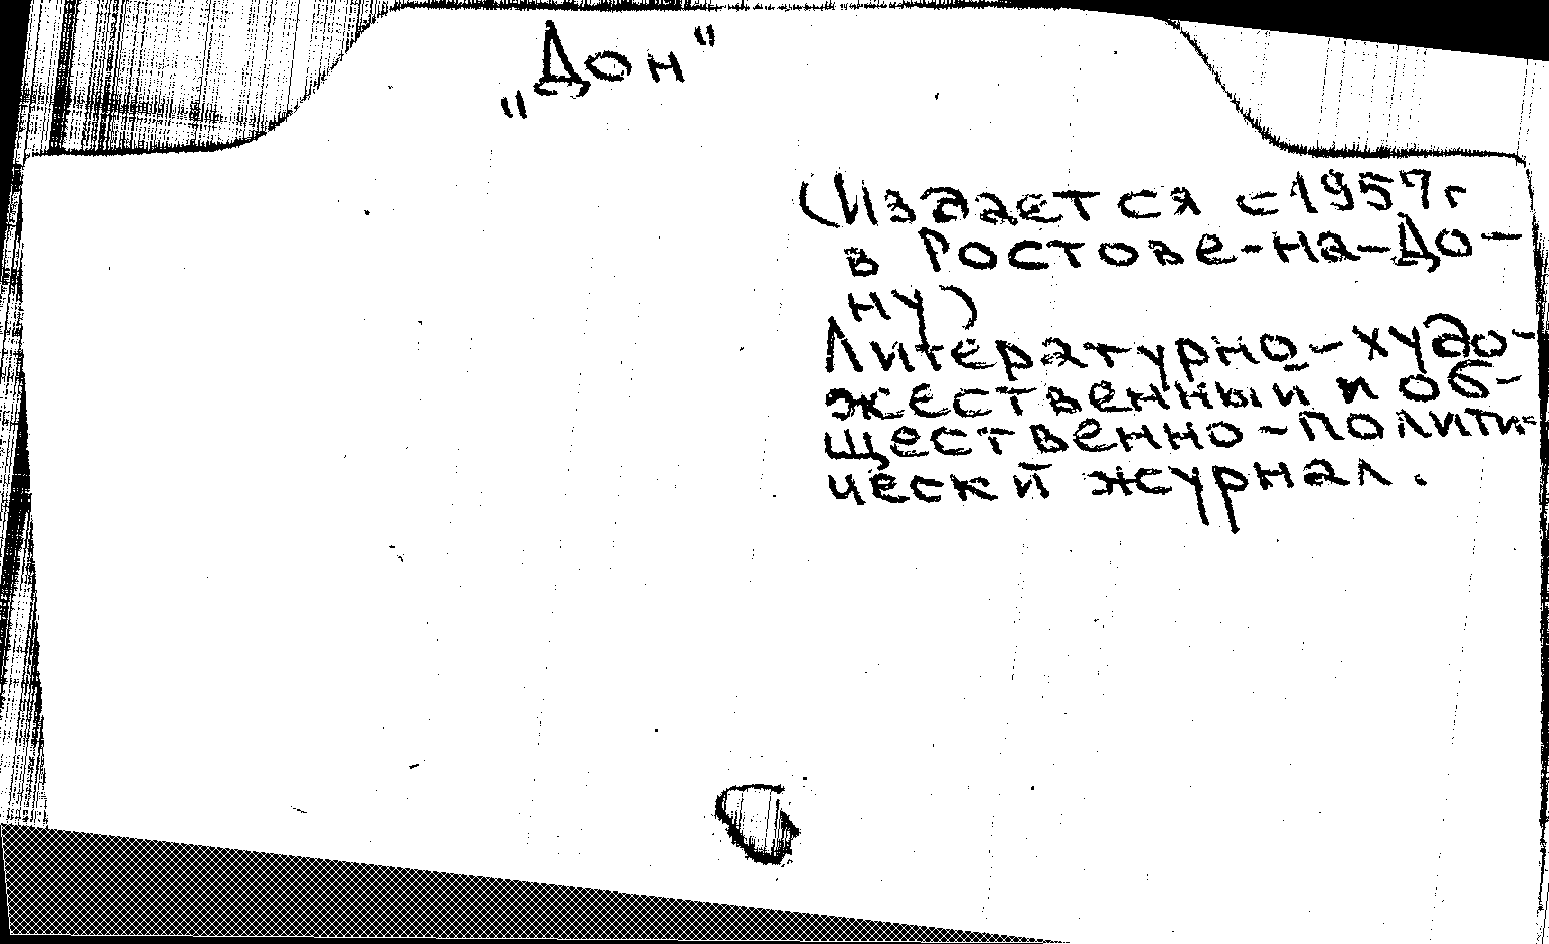 „Дон"
(Издается с 1957г
в Ростове-на-До-
ну)
Литературно-худо-
жественный и об-
щественно-полити-
ческий журнал.